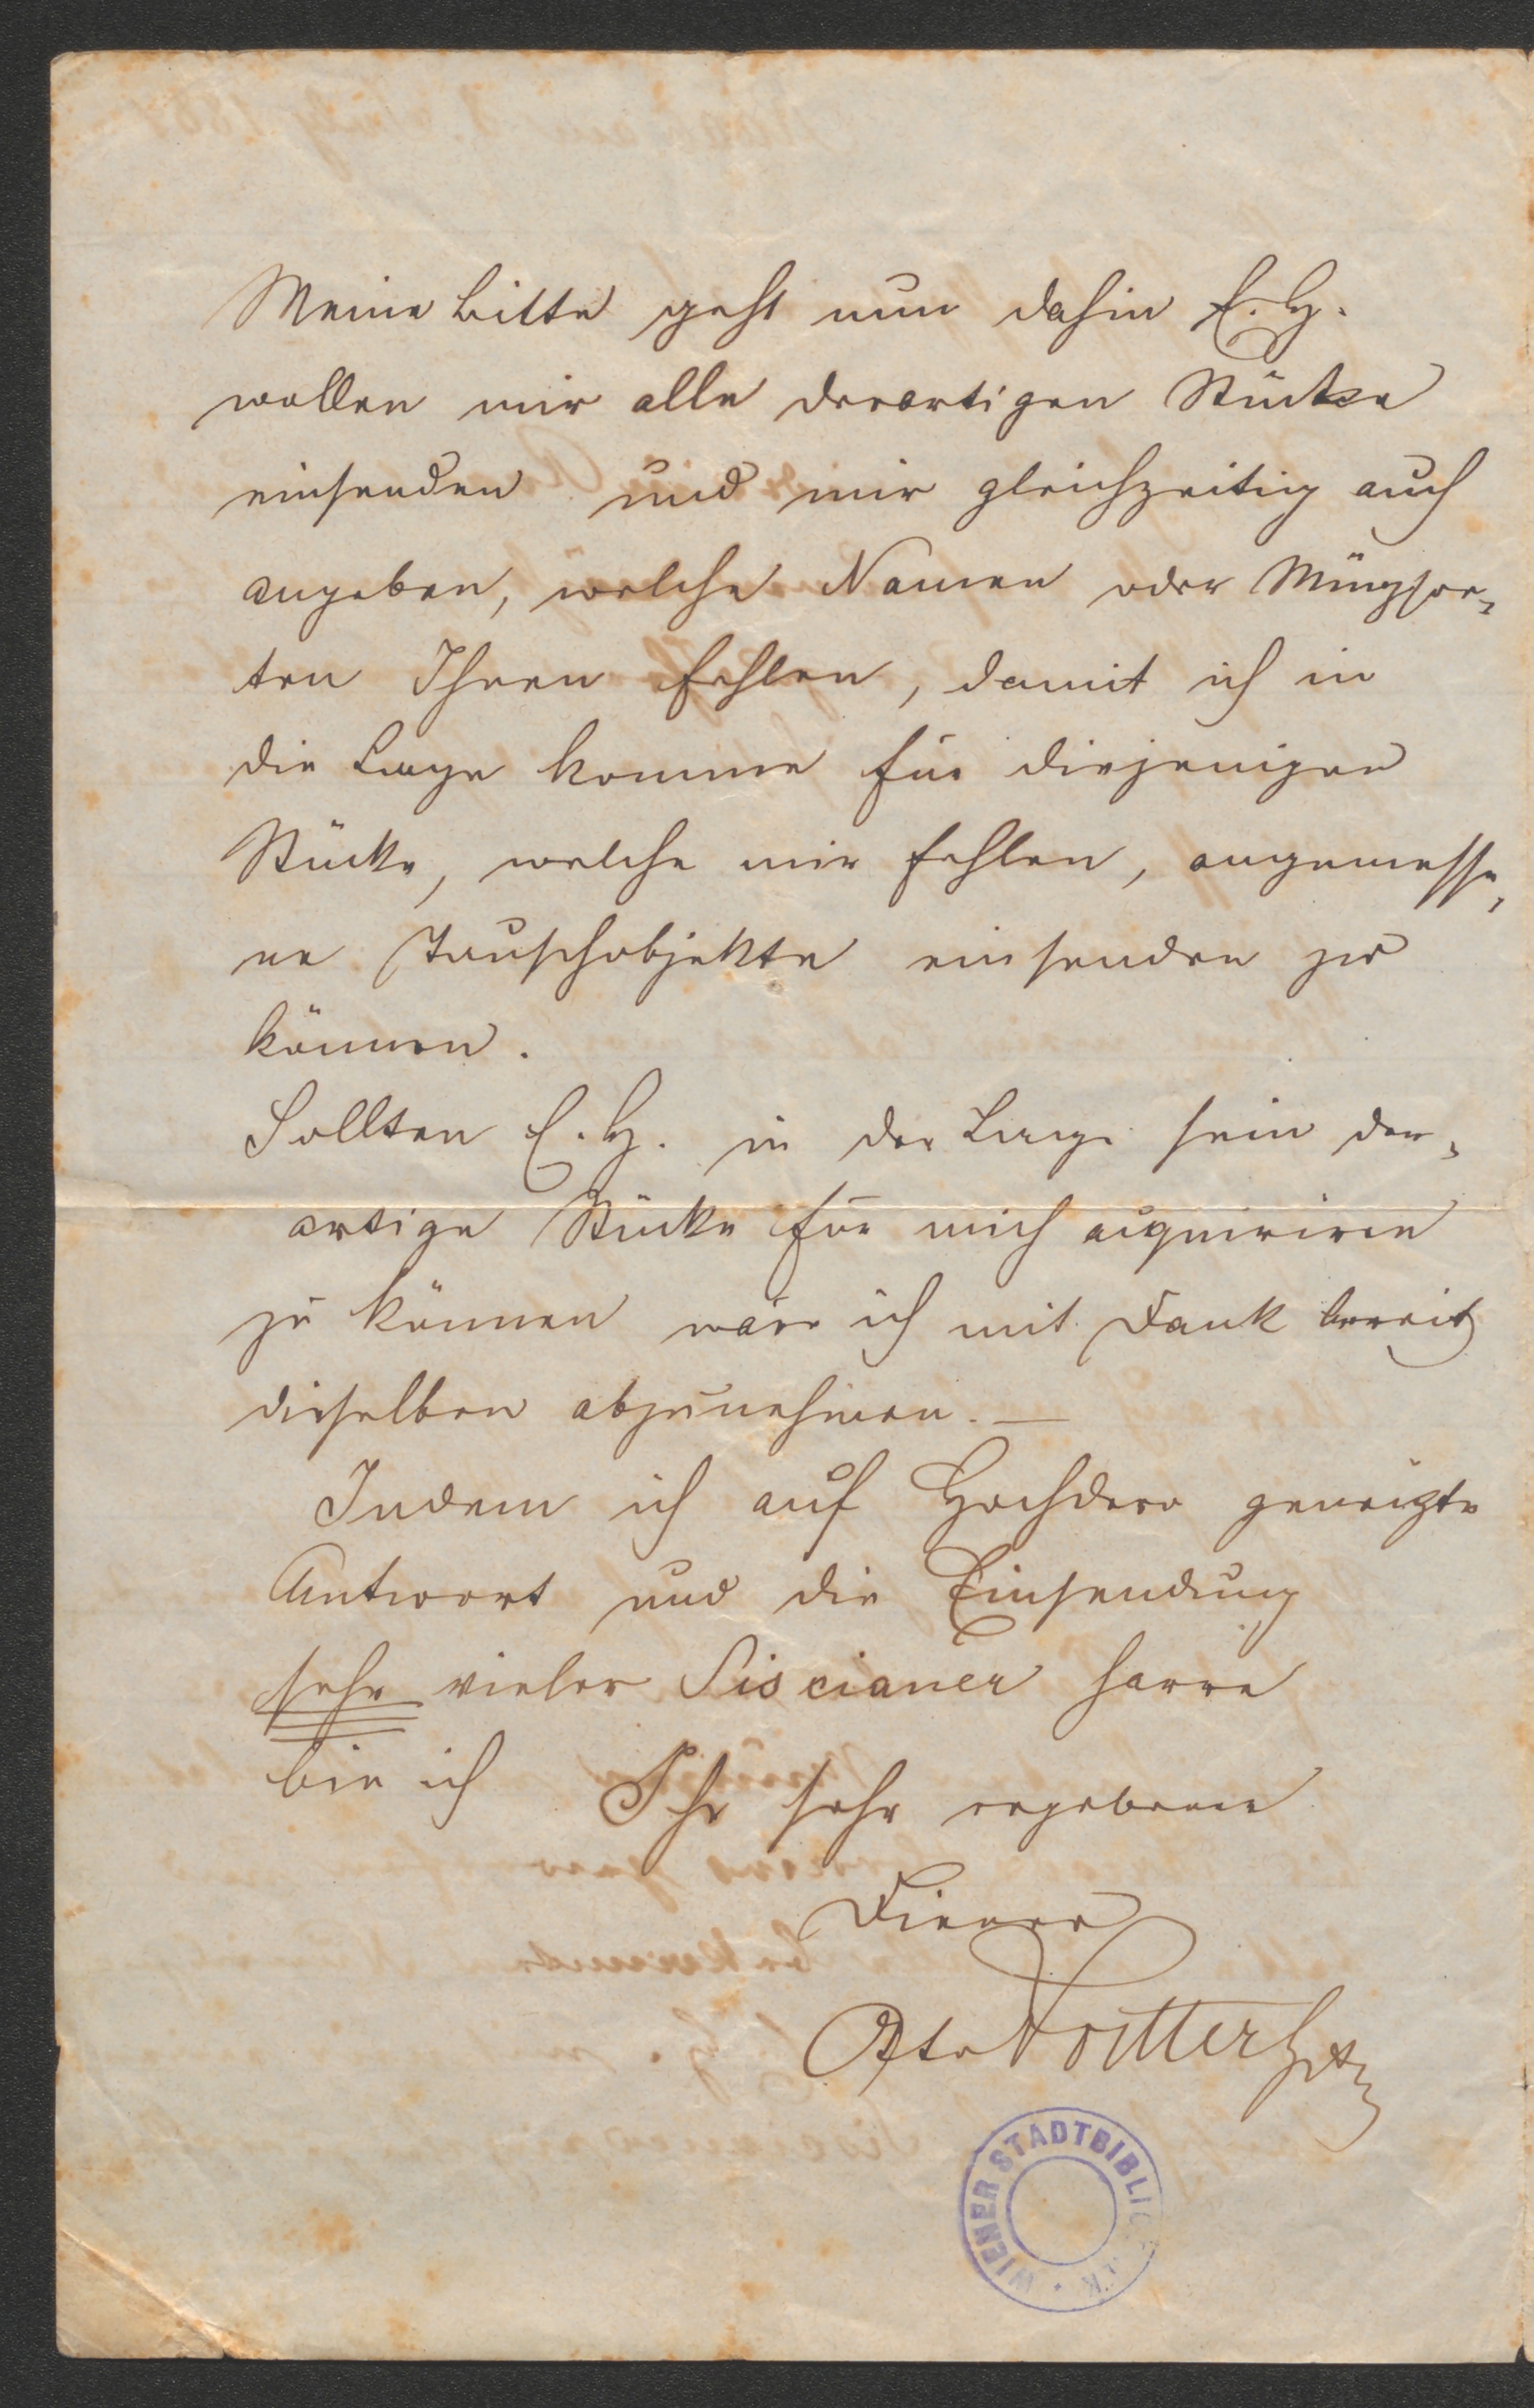 Meine Bitte geht nun dahin E. H.
wollen mir alle derartigen Stücke
einsenden und mir gleichzeitig auch
angeben, welche Namen oder Münzsor-
ten Ihnen fehlen, damit ich in
die Lage komme für diejenigen
Stücke, welche mir fehlen, angemesse-
ne Tauschobjekte einsenden zu
können.
Sollten E. H. in der Lage sein der-
artige Stücke für mich acquiriren
zu können wäre ich mit Dank bereit
dieselben abzunehmen. —
Indem ich auf Hochdero geneigte
Antwort und die Einsendung
sehr vieler Siscianer harre
bin ich Ihr sehr ergebener
Diener
Otto Voetter
WIENER STADTBIBLIOTHEK